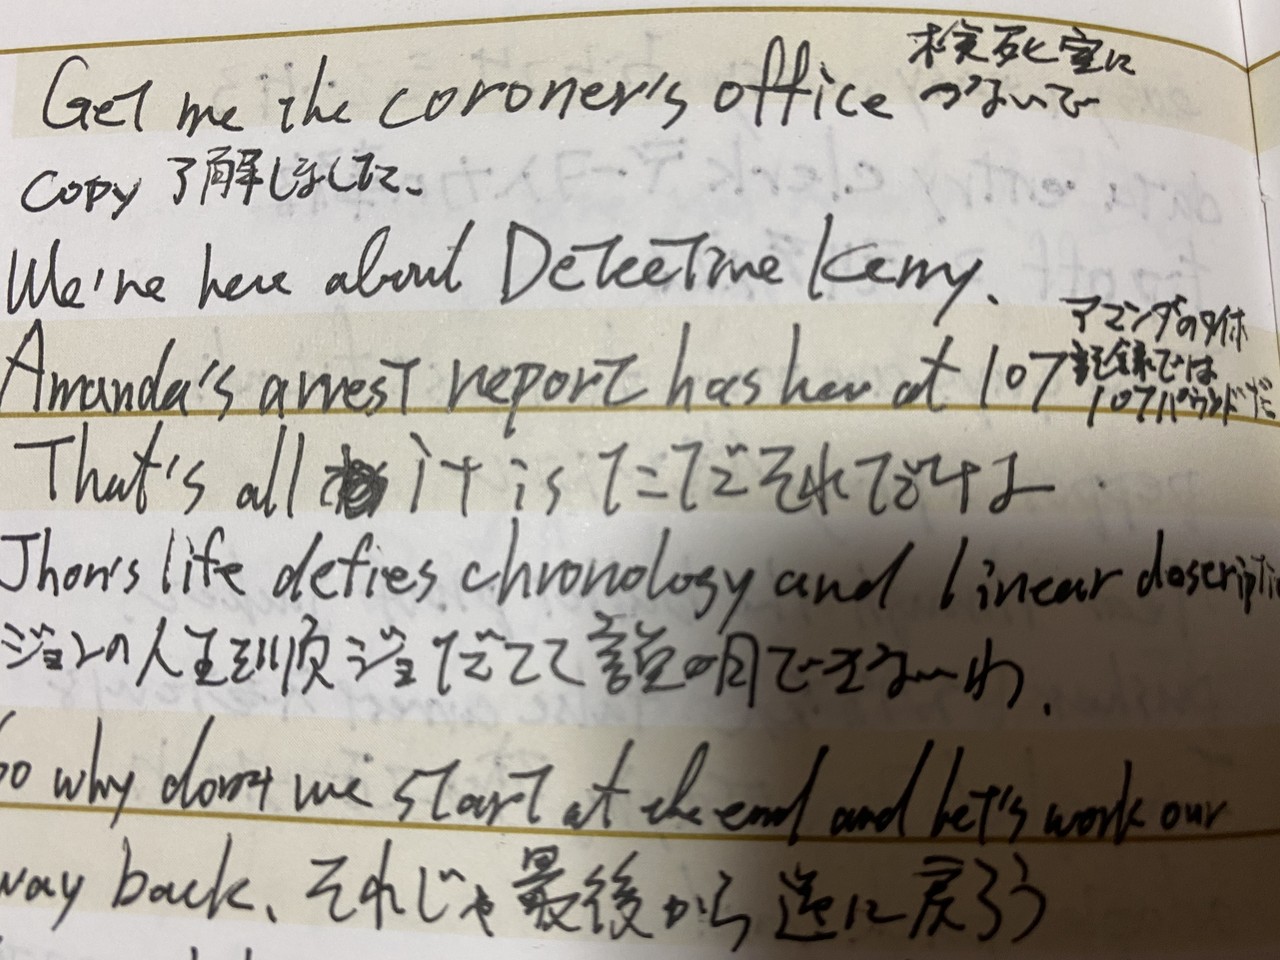 Get me the coroner's office 検死室に
つないで
copy 了解しました、
We're here about Detective Kerry.
Amanda's arrest report has her at 107 アマンダの
記録では
107パウンドだ
That's all it is ただそれだけよ
Jhon's life defies chronology and linear
ジョンの人生を順ジョだてて説明できないわ.
So why don't we start at the end and let's work our
way back、それじゃ最後から逆に戻ろう